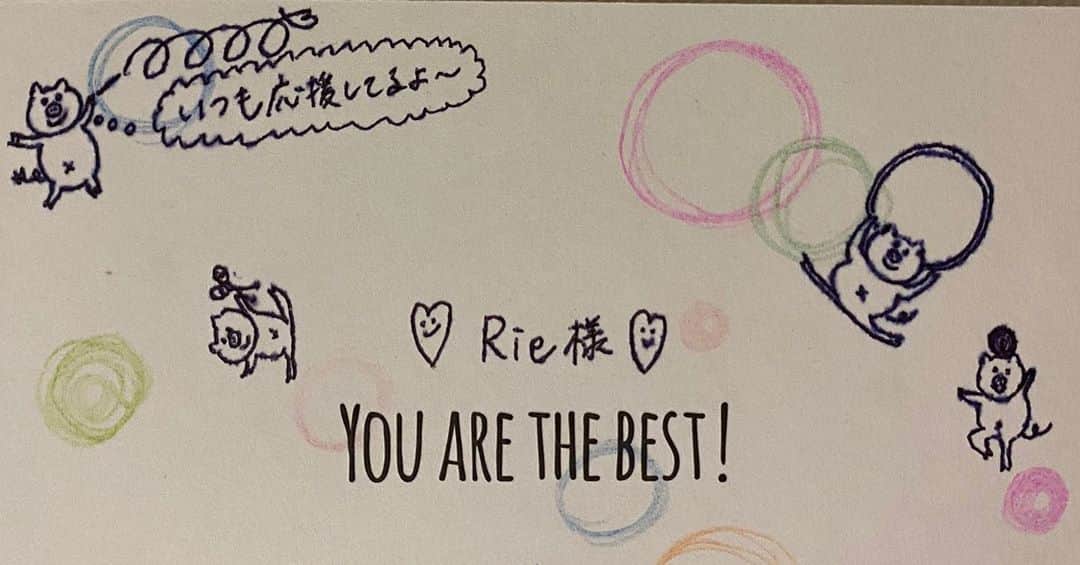 いつも応援してるよ〜
Rie様
YOU ARE THE BEST!